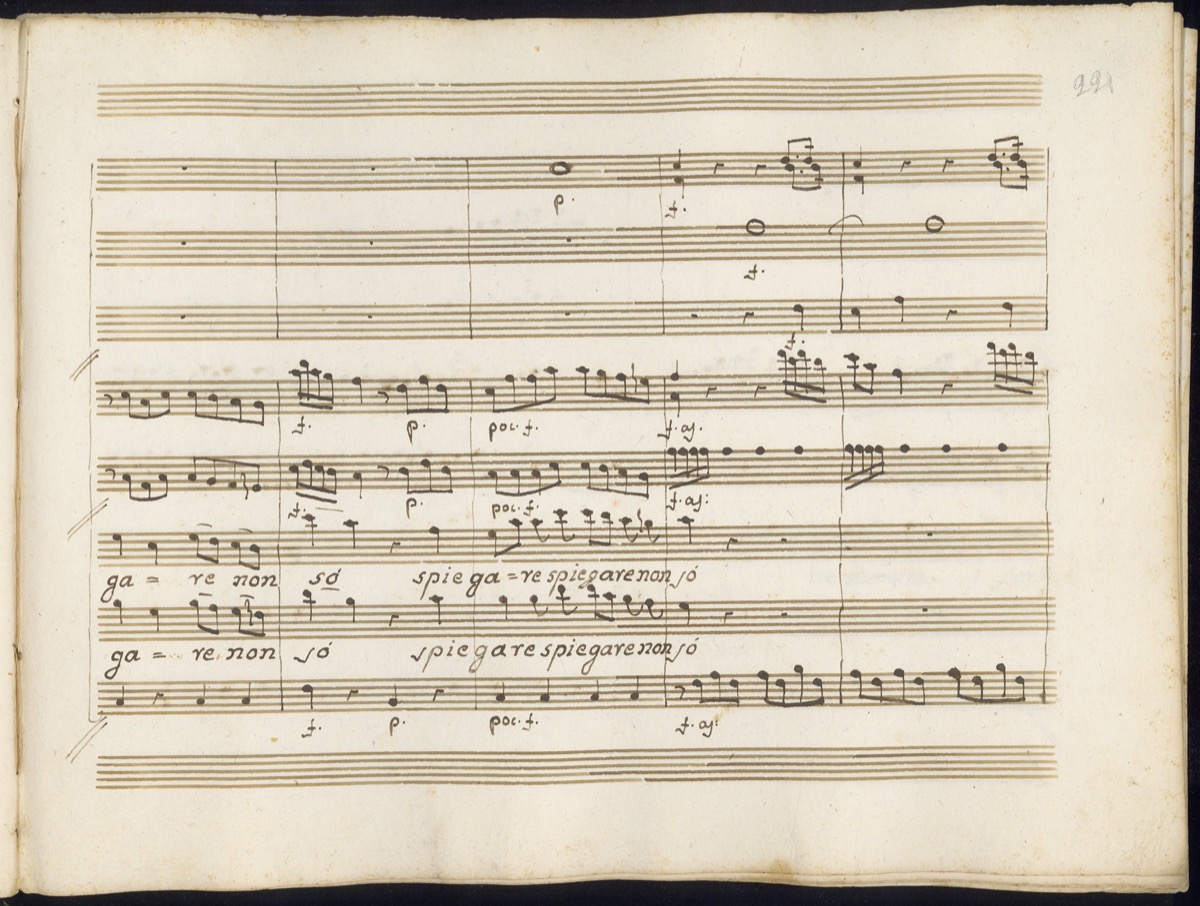 221
p. f.
f.
f.
f. p. poc. f. f. as.
f. p. poc. f. f. as:
ga = re non só spie ga = re spiegare non só
ga = re non só spiegare spiegare non só
f. p. poc. f. f. as: